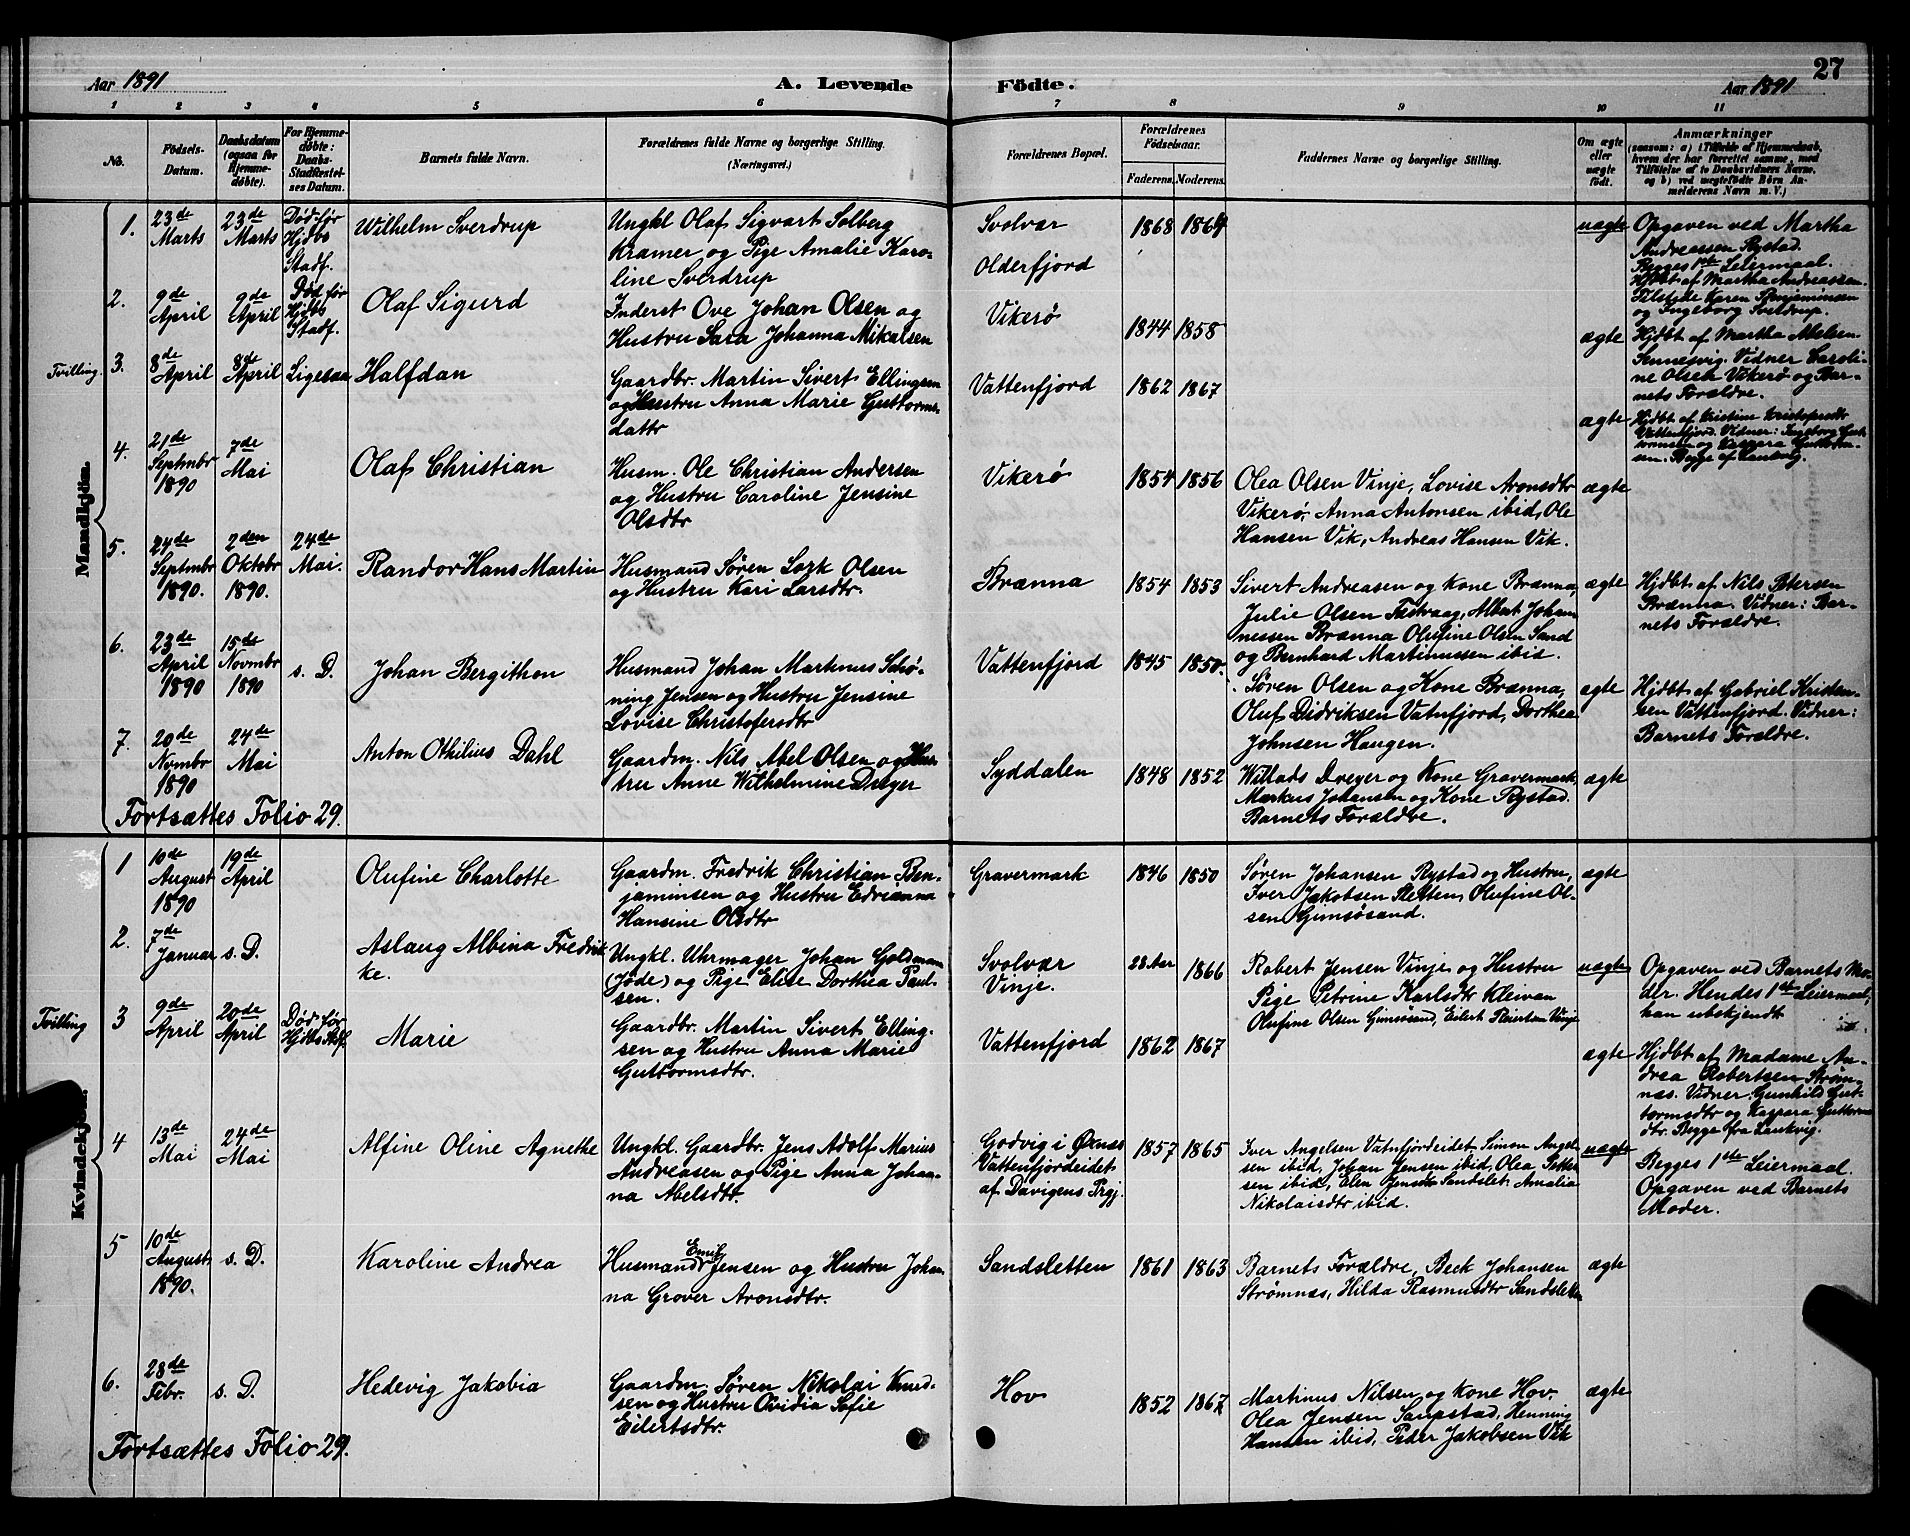 Aar 1891
A. Levende
Födte.
Aar 1891
27
1 2 3 4 5 6 7 8 9 10 11
No.
Födsels-
Datum.
Daabsdatum
(ogsaa for
Hjemme-
döbte).
For Hjemme-
döbte:
Daabs-
Stadfæstel-
ses Datum.
Barnets fulde Navn.
Forældrenes fulde Navne og borgerlige Stilling.
(Næringsvei.)
Forældrenes Bopæl.
Forældrenes
Födselsaar.
Faderens. Moderens.
Faddernes Navne og borgerlige Stilling.
Om ægte
eller
uægte
födt.
Anmærkninger
(saasom: a) i Tilfælde af Hjemmedaab,
hvem der har forrettet samme, med
Tilföielse af to Daabsvidners Navne,
og b) ved uægtefödte Börn An-
melderens Navn m. V.)
Mandkjön.
1.
23de
Marts
23de
Marts
Død før
Hjdbs
Stadf.
Wilhelm Sverdrup
Ungkl Olaf Sigvart Solberg
Kramer og Pige Amalie Karo-
line Sverdrup
Svolvær
Olderfjord
1868 1864
uægte
Opgaven ved Martha
Andreassen Rystad.
Begges 1ste Leiermaal.
Hjdbt af Martha Andreassen.
Tilstede Karen Benjaminsen
og Ingeborg Sverdrup.
2.
9de
April
9de
April
Død før
Hjdbs
Stadf.
Olaf Sigurd
Inderst Ove Johan Olsen og
Hustru Sara Johanna Mikalsen
Vikerø
1844 1858
ægte
Hjdbt af Martha Abelsen
Sennesvig. Vidner Caroli-
ne Olsen Vikerø og Bar-
nets Forældre.
Tvilling.
3.
8de
April
8de
April
Ligesaa
Halfdan
Gaardbr. Martin Sivert Ellingsen
og Hustru Anna Marie Guttorms-
dattr
Vattenfjord
1862 1867
ægte
Hjdbt af Kristine Kristofersdtr
Vattenfjord. Vidner: Ingeborg Gutt
ormsen og Kaspara Guttorm-
sen. Begge af Laukvig.
4.
21de
Septmbr
1890
7de
Mai
Olaf Christian
Husm. Ole Christian Andersen
og Hustru Caroline Jensine
Olsdtr
Vikerø
1854 1856
Olea Olsen Vinje, Lovise Aronsdtr
Vikerø, Anna Antonsen ibid, Ole
Hansen Vik, Andreas Hansen Vik.
ægte
5.
24de
Septmbr
1890.
2den
Oktobr
1890.
24de
Mai.
Randor Hans Martin
Husmand Søren Lork Olsen
og Hustru Kari Larsdtr.
Brænna
1854 1853
Sivert Andreasen og Kone Brænna,
Julie Olsen Festvaag, Albert Johan
nessen Brænna Olufine Olsen Sand
og Bernhard Martinussen ibid.
ægte
Hjdbt af Nils Petersen
Brænna. Vidner: Bar-
nets Forældre.
6.
23de
April
1890
15de
Novmbr
1890
s. D.
Johan Bergithon
Husmand Johan Martinus Schø-
ning Jensen og Hustru Jensine
Lovise Christofersdtr
Vattenfjord
1845 1850.
Søren Olsen og Kone Brænna,
Oluf Didriksen Vatnfjord, Dorthea
Johnsen Haugen.
ægte
Hjdbt af Gabriel Kristen-
sen Vattenfjord. Vidner:
Barnets Forældre.
7.
20de
Novmbr
1890
24de
Mai
Anton Othilius Dahl
Gaardm. Nils Abel Olsen og Hus-
tru Anne Wilhelmine Dreyer
Syddalen
1848 1852
Willads Dreyer og Kone Gravermark
Markus Johansen og Kone Rystad.
Barnets Forældre.
ægte
Fortsættes Folio 29.
Kvindekjön.
1
10de
August
1890
19de
April
Olufine Charlotte
Gaardm. Fredrik Christian Ben-
jaminsen og Hustru Edrianna
Hansine Olsdtr
Gravermark
1846 1850
Søren Johansen Rystad og Hustru,
Iver Jakobsen Sletten, Olufine Ol-
sen Gimsøsand.
ægte
2.
7de
Januar
s. D.
Aslaug Albina Fredrik
ke.
Ungkl. Uhrmager Johan Goldmann
(Jøde) og Pige Elise Dorthea Paul-
sen.
Svolvær
Vinje.
28 Aar 1866
Robert Jensen Vinje og Hustru
Pige Petrine Karlsdtr Kleivan
Olufine Olsen Gimsøsand, Eilert Vinje
uægte
Opgaven ved Barnets Mo-
der. Hendes 1ste Leiermaal,
han ubekjendt
Tvilling
3
9de
April
20de
April
Død før
Hjdbs Stadf.
Marie
Gaardbr. Martin Sivert Elling-
sen og Hustru Anna Marie
Guttormsdtr.
Vattenfjord
1862 1867
ægte
Hjdbt af Madame An-
drea Robertsen Strøm-
næs. Vidner: Gunhild Gut-
tormsdtr og Kaspara Guttorms
dtr. Begge fra Laukvig.
4
13de
Mai
24de
Mai
Alfine Oline Agnethe
Ungkl. Gaardbr. Jens Adolf Marius
Andreasen og Pige Anna Johan-
na Abelsdtr.
Godvig i Øxnæs
Vattenfjordeidet
af Davigens Prgj.
1857 1865
Iver Angelsen Vatnfjordeidet, Simon Angel-
sen ibid, Johan Jensen ibid, Olea Petter
sen ibid, Elen Jensdtr Sandslet. Amalia
Nikolaisdtr ibid.
uægte
Begges 1ste Leiermaal.
Opgaven ved Barnets
Moder.
5
10de
August
1890.
s. D.
Karoline Andrea
Husmand Emil Jensen og Hustru Johan
na Grover Aronsdtr.
Sandsletten
1861 1863
Barnets Forældre, Beck Johansen
Strømnæs, Hilda Rasmusdtr Sandsletten
ægte
6.
28de
Febr.
s. D.
Hedevig Jakobia
Gaardm. Søren Nikolai Knud-
sen og Hustru Ovidia Sofie
Eilertsdtr.
Hov
1852 1867
Martinus Nilsen og Kone Hov.
Olea Jensen Saupstad, Henning
Hansen ibid, Peder Jakobsen Vik
ægte
Fortsættes Folio 29.